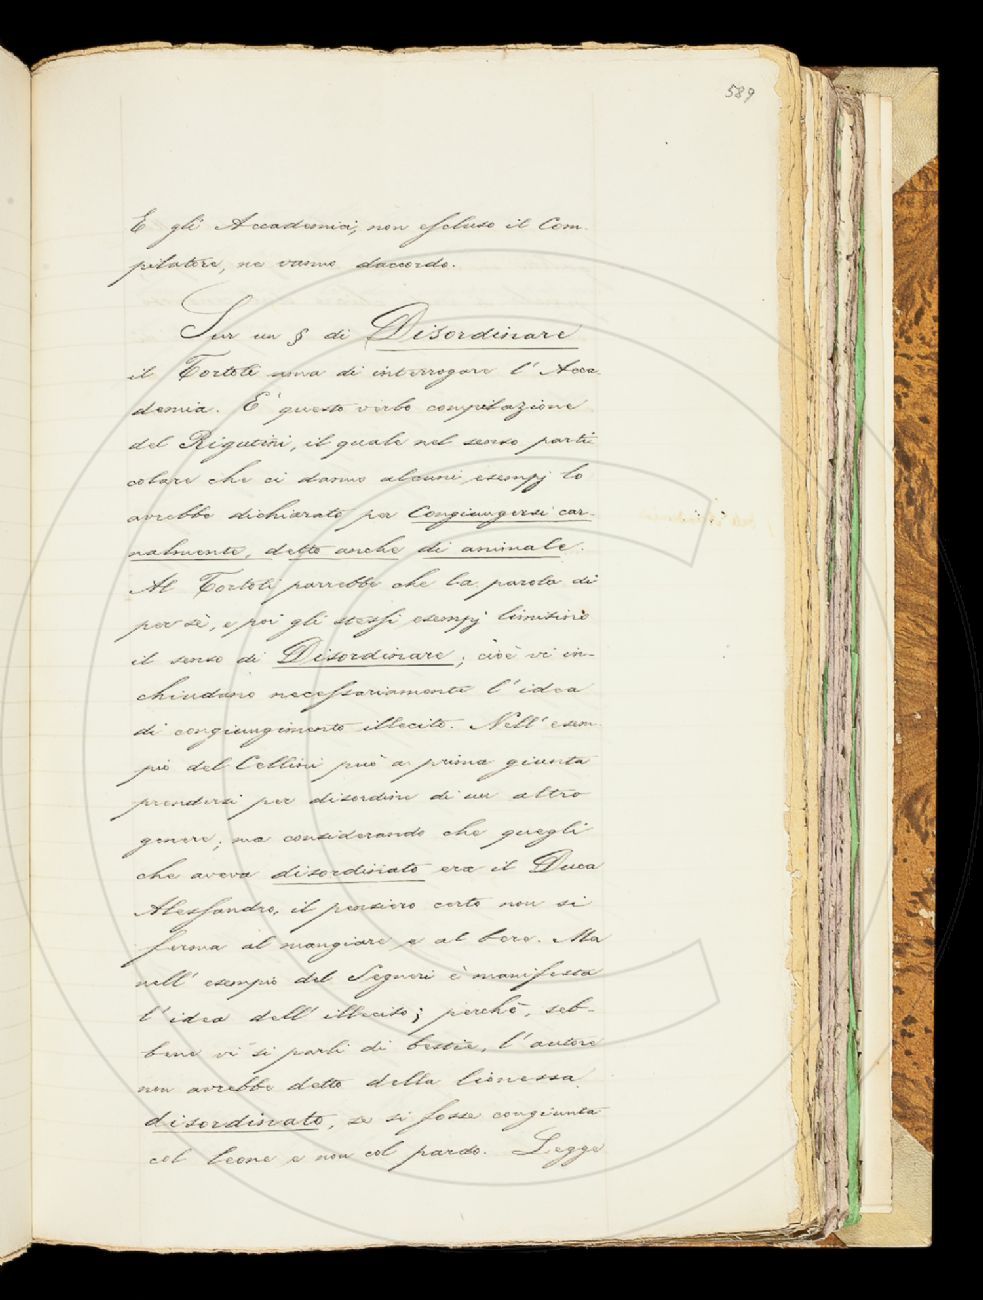 589
E gli Accademici, non escluso il Com-
pilatore, ne vanno daccordo.
Sur un § di Disordinare
il Tortoli ama di interrogare l'Acca-
demia. E' questo verbo compilazione
del Rigutini, il quale nel senso parti
colare che ci danno alcuni esempj lo
avrebbe dichiarato per Congiungersi car-
nalmente, detto anche di animale.
Al Tortoli parrebbe che la parola di
per sè, e poi gli stessi esempj limitino
il senso di Disordinare; cioè vi in-
chiudano necessariamente l'idea
di congiungimento illecito. Nell'esem-
pio del Cellini può a prima giunta
prendersi per disordine di un altro
genere; ma considerando che quegli
che aveva disordinato era il Duca
Alessandro, il pensiero certo non si
ferma al mangiare e al bere. Ma
nell'esempio del Segneri è manifesta
l'idea dell'illecito; perchè, seb-
bene vi si parli di bestie, l'autore
non avrebbe detto della lionessa
disordinato, se si fosse congiunta
col leone e non col pardo. Legge